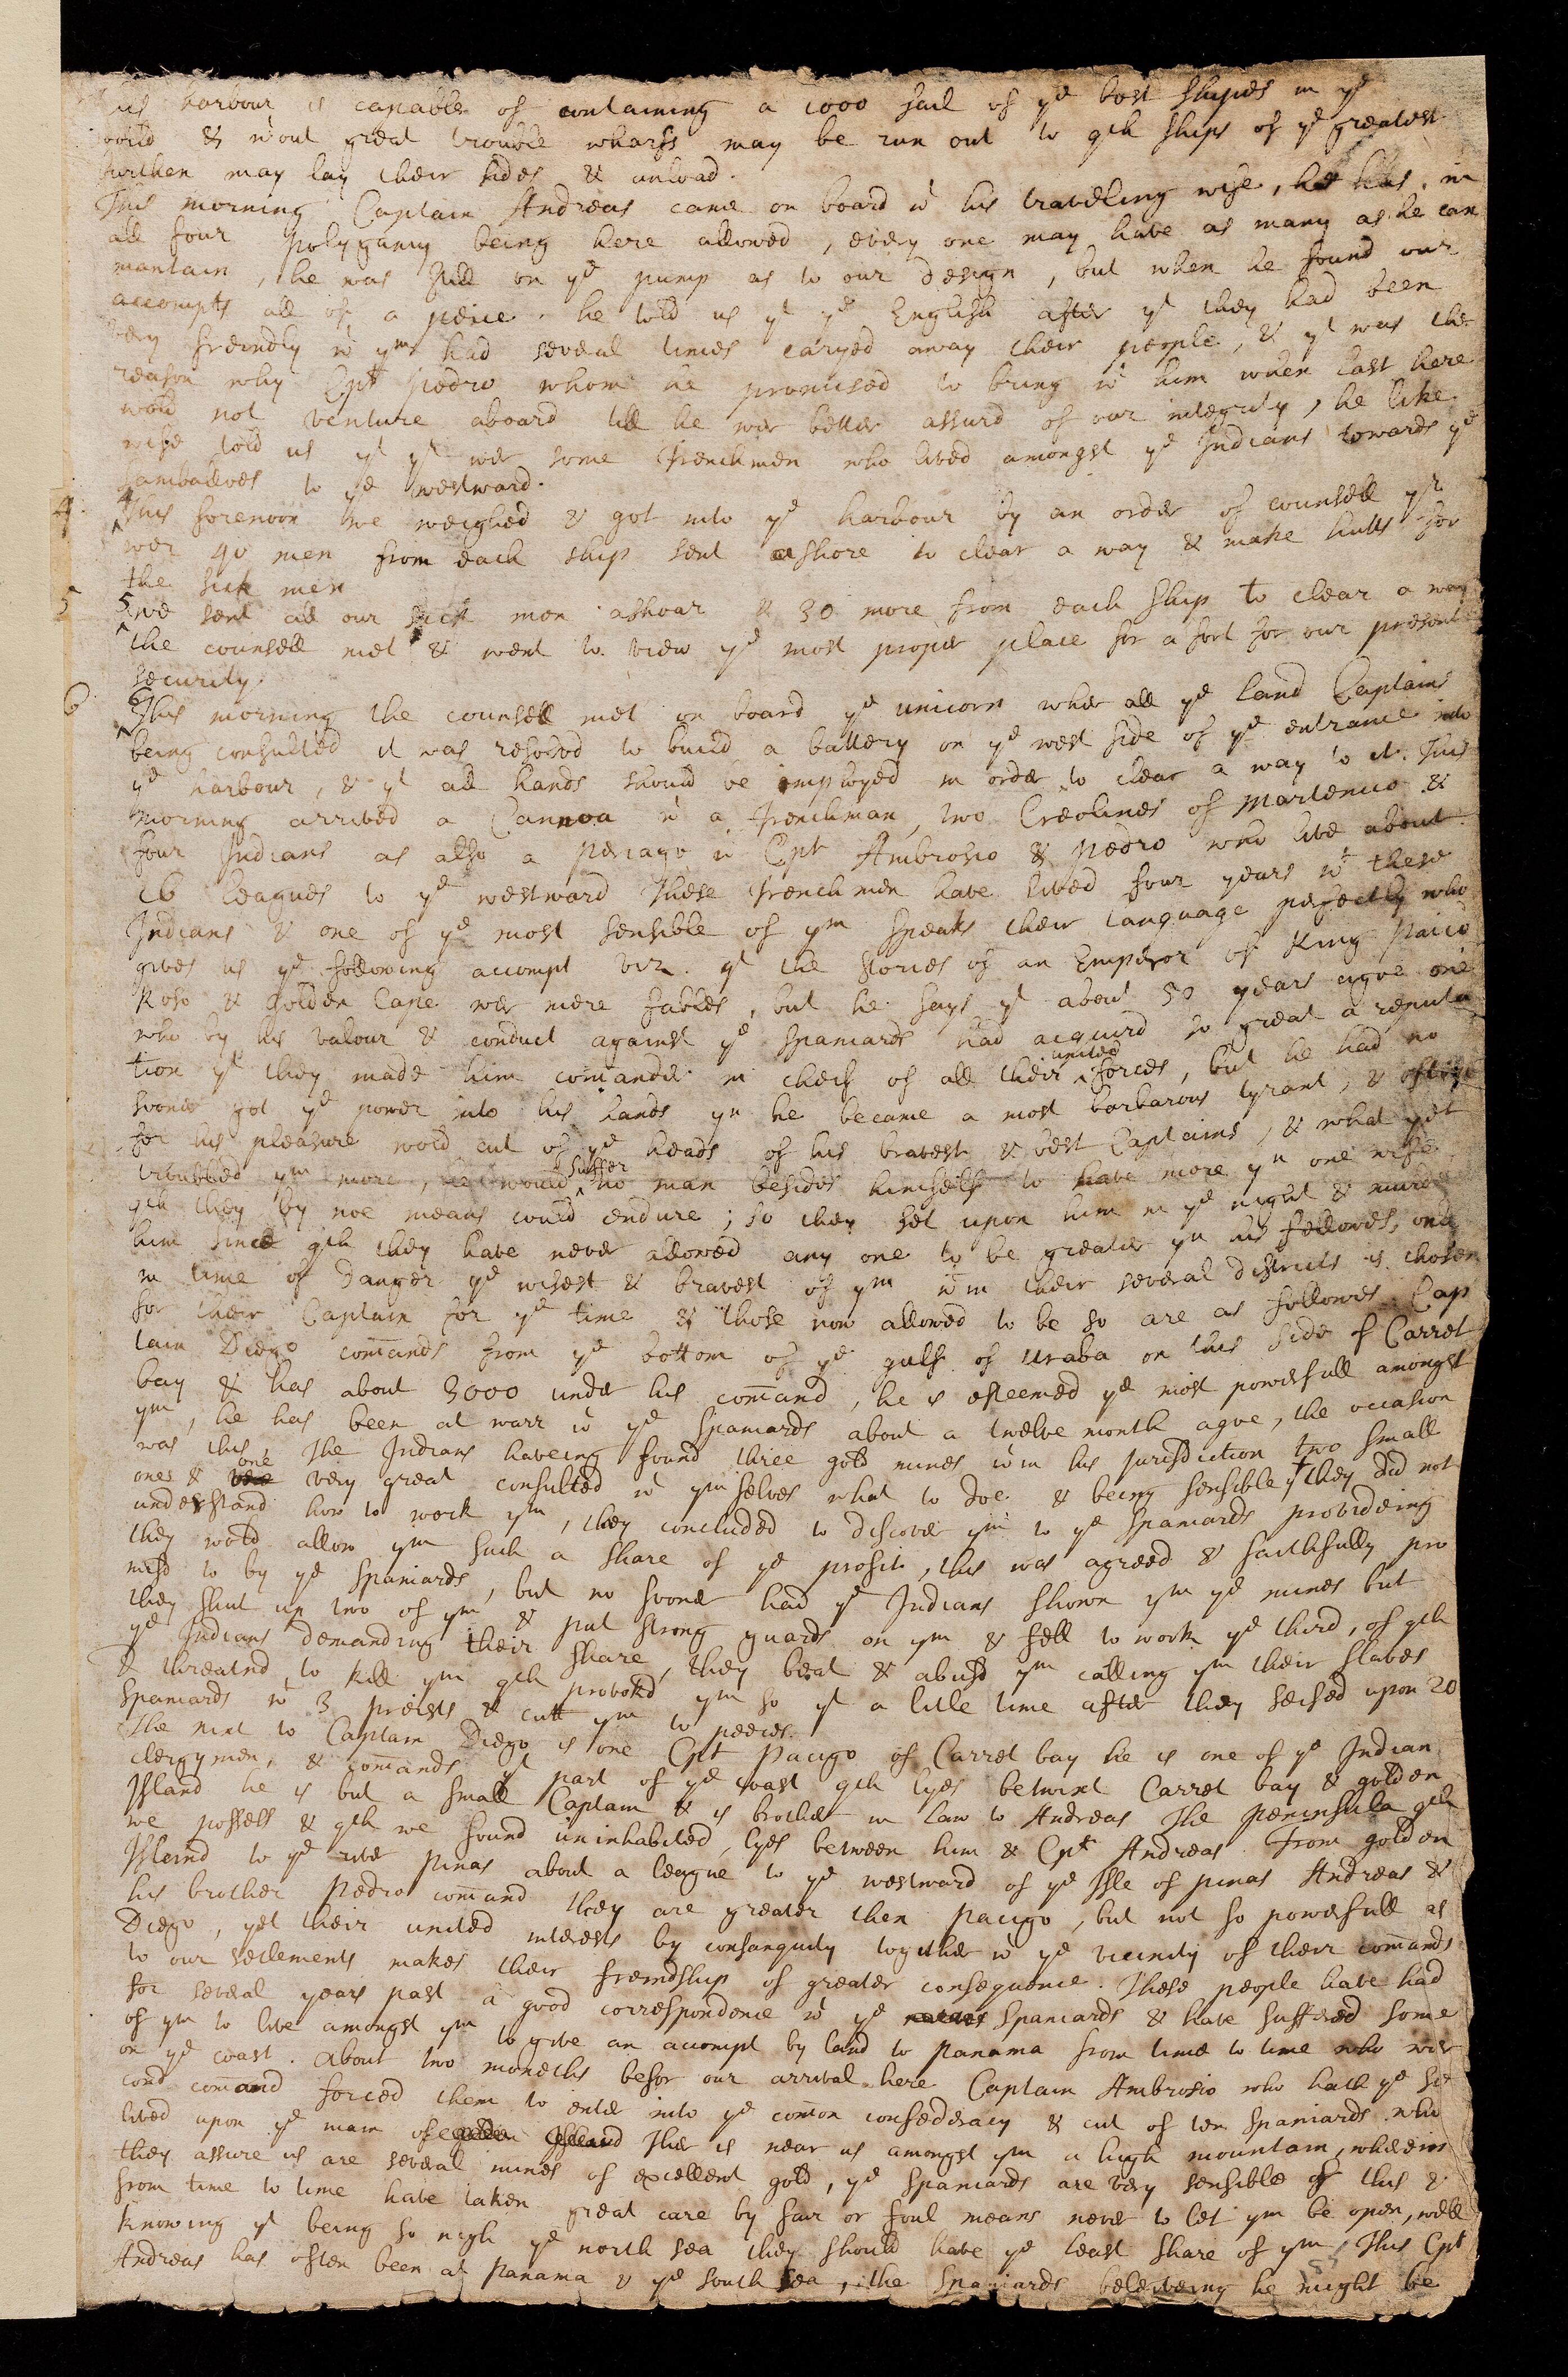 harbour is capable of containing a 1000 sail of ye best shipes in ye
world & wout great trouble wharfs may be run out to qch ships of ye greatest
burthen may lay their sides & unload.
This morning Captain Andreas came on board wt his traveling wife, he has in
all four polygamy being here allowed, every one may have as many as he can
mantain, he was still on ye pump as to our design, but when he found our
accompts all of a peice. he told us yt ye English after yt they had been
very freindly wt ym had several times caryed away their people, & yt was the
reason why Cpt Pedro whom he promised to bring wt him when last here
wold not venture aboard till he wer better assurd of our integrity, he like
wise told us yt yr wer some frenchmen who lived amongst ye Indians towards ye
Sambaloes to ye westward.
4. 4 This forenoon we weighed & got into ye harbour by an order of counsell yr
wer 40 men from each ship sent ashore to clear a way & make hutts for
the sick men
5 5 we sent all our sick men ashoar & 30 more from each ship to clear a way
the counsell met & went to view ye most proper place for a fort for our present
security.
6 6 This morning the counsell met on board ye unicorn wher all ye land Captains
being consulted it was resolved to build a battery on ye west side of ye entrance into
ye harbour, & yt all hands should be imployed in order to clear a way to it. This
morning arrived a Cannoa wt a frenchman, two Creolines of Martenico &
four Indians as also a periago wt Cpt Ambrosio & Pedro who live about
16 leagues to ye westward These frenchmen have lived four years wt these
Indians & one of ye most sensible of ym speaks their language perfectly who
gives us ye following accompt viz. yt the stories of an Emperor of King
& golden Cape wer mere fables, but he says yt about 50 years agoe one
who by his valour & conduct against ye Spaniards had acquird so great a reputa
tion yt they made him comander in cheif of all their united forces, but he had no
sooner got ye power into his hands yn he became a most barbarous tyrant, &
for his pleasure wold cut of ye heads of his bravest & best Captains, & what yet
troubled ym more, he would suffer no man besides himself to have more yn one wife
qch they by noe means could endure; so they set upon him in ye night & murd
him since qch they have never allowed any one to be greater yn his fellowes, only
in time of danger ye wisest & bravest of ym wtin their several districts is chosen
for their Captain for ye time & those now allowed to be so are as followes Cap
tain Diego comands from ye bottom of ye gulf of Uraba on this side of Carret
bay & has about 3000 under his comand, he is esteemed ye most powerfull amongst
ym, he has been at warr wt ye Spaniards about a twelve month agoe, the occasion
was this, The Indians haveing found three gold mines wtin his jurisdiction two small
ones & one very great consulted wt ymselves what to doe & being sensible yt they did not
understand how to work ym, they concluded to discover ym to ye Spaniards provideing
they wold allow ym such a share of ye profit, this was agreed & faithfully pro
misd to by ye Spaniards, but no sooner had ye Indians shown ym ye mines but
they shut up two of ym & put strong guards on ym & fell to work ye third, of qch
ye Indians demanding their share, they beat & abusd ym calling ym their slaves
& threatnd to kill ym qch provokd ym so yt a litle time after they seised upon 20
Spaniards wt 3 preists & cutt ym to peeces.
The next to Captain Diego is one Cpt Pacigo of Carret bay he is one of ye Indian
clergymen, & comands yt part of ye coast qch lyes betwixt Carret bay & golden
Island he is but a small Captain & is brother in law to Andreas The peninsula qch
we possess & qch we found uninhabited, lyes between him & Cpt Andreas. from golden
Island to ye river pinas about a league to ye westward of ye Isle of pinas Andreas &
his brother Pedro comand they are greater then Pacigo, but not so powerfull as
Diego, yet their united interests by consanguity together wt ye vicinity of their comands
to our setlements makes their freindship of greater consequence. These people have had
for several years past a good correspondence wt ye Spaniards & have suffered some
of ym to live amongst ym to give an accompt by land to Panama from time to time who wer
on ye coast. About two moneths befor our arrival here Captain Ambrosio who hath ye se
cond comand forced them to enter into ye comon confederacy & cut of ten Spaniards who
lived upon ye main of golden Island Ther is near us amongst ym a high mountain, wherein
they assure us are several mines of excellent gold, ye Spaniards are very sensible of this &
from time to time have taken great care by fair or foul means never to let ym be open, well
knowing yt being so nigh ye north sea they should have ye least share of ym, This Cpt
Andreas has often been at Panama & ye south sea, the Spaniards beleiveing he might be